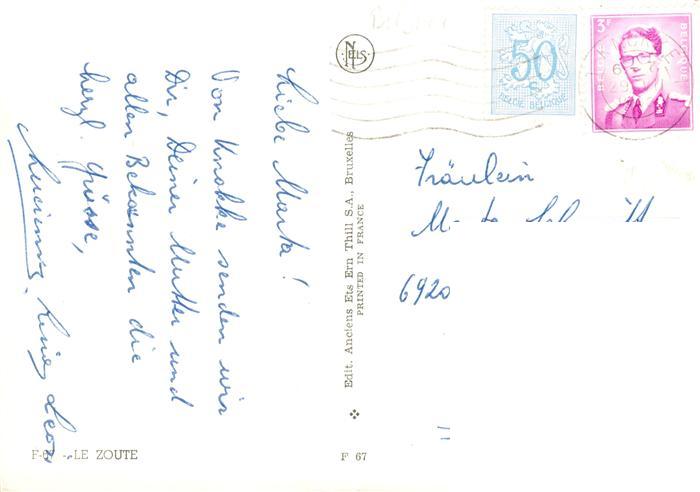 Liebe Marta!
Von Knokke senden wir
Dir, Deiner Mutter und
allen Bekannten die
herzl. Grüsse,
F-67 - LE ZOUTE
Edit. Anciens Ets Ern Thill S.A., Bruxelles
PRINTED IN FRANCE
F 67
NELS
50
c
BELGIE BELGIQUE
3F
BELGIE BELGIQUE
Fräulein
6920